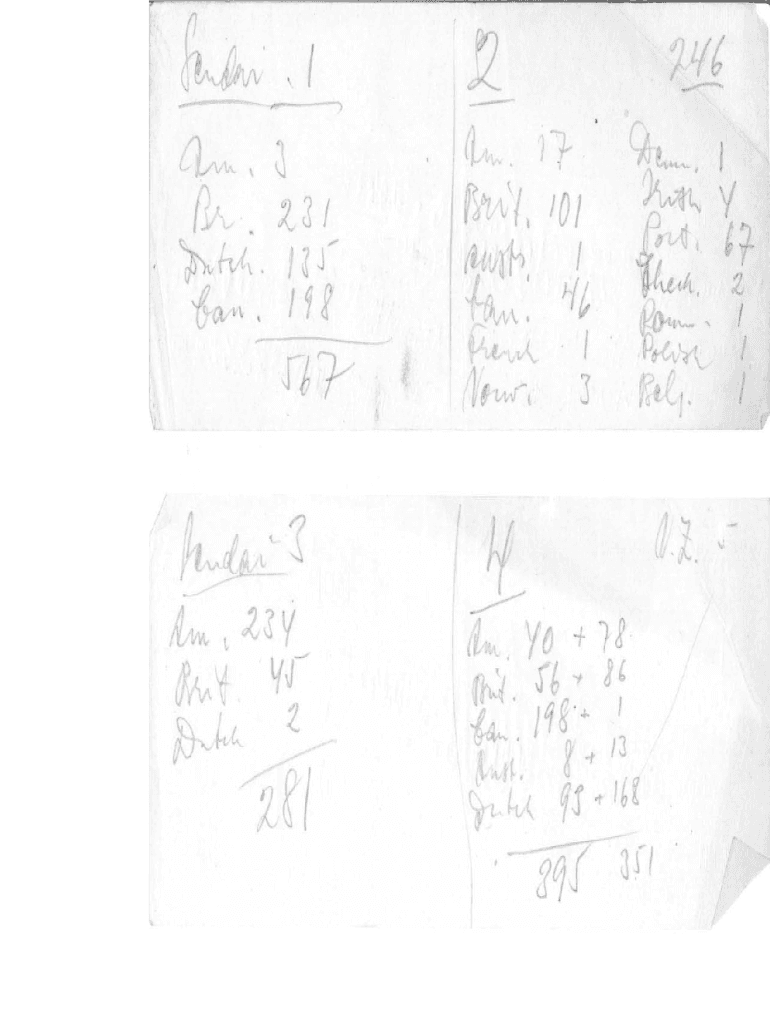 Sendai . 1
Am. 3
Br. 231
Dutch. 135
Can. 198
567
2
246
Am. 17
Brit. 101
Austr. 1
Can. 46
French 1
Norw. 3
Denm. 1
4
Port. 67
Chech. 2
Roum. 1
Polish 1
Belg. 1
Sendai 3
Am. 234
Brit. 45
Dutch 2
281
4
5
Am. 40 + 78
Brit. 56 + 86
Can. 198 + 1
Aust. 8 + 13
Dutch 93 + 168
395 351